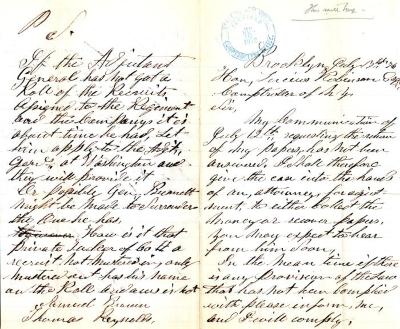 P. S.
If the Adjutant
General has not got a
Roll of the Recruits
assigned to the Regiment
and the Companys it is
about time he had, let
him apply to the
Genl at Washington and
they will provide it
Or possibly Genl
might be made to surrender
the one he has.
How is it that
private Parker of Co H a
recruit not mustered in, only
mustered out has his name
on the Roll and
Samuel Brown
Thomas Reynolds.
Brooklyn July
Hon. Lucius Robinson
Comptroller of N Y
Sir,
My Communication of
July 12th requesting the return
of my papers, has not been
answered, I shall therefore
give the case into the hands
of an attorney for adjust
ment, to either collect the
money or recover papers,
you may expect to hear
from him soon,
In the mean time if there
is any provision of the law
that has not been complied
with please inform me,
and I will comply,